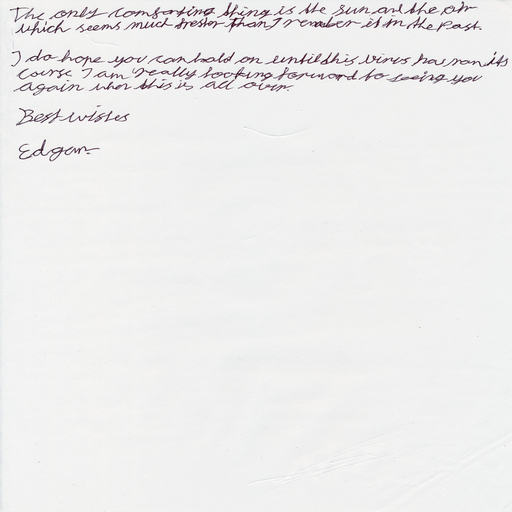 The only comforting thing is the sun and the air
which seems much fresher than I remember it in the past.
I do hope you can hold on until this virus has ran its
course I am really looking forward to seeing you
again when this is all over.
Best wishes
Edgar